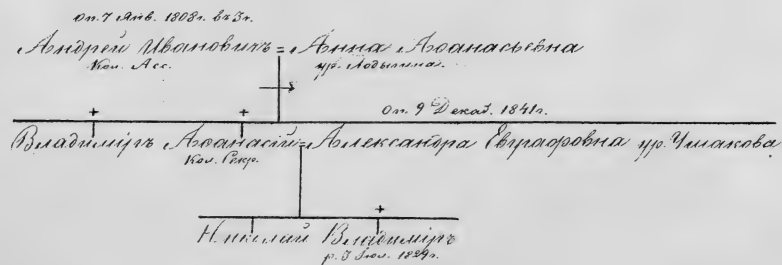 оп. 7 Янв. 1808г. въ 3г.
Андрей Ивановичъ = Анна Аѳанасьевна
Кол. Асс. ур. Лодыгина.
оп. 9 Декаб. 1841г.
Владиміръ Аѳанасій = Александра Евграфовна ур. Ушакова
Кол. Секр.
Николай Владиміръ
р. 1829г.